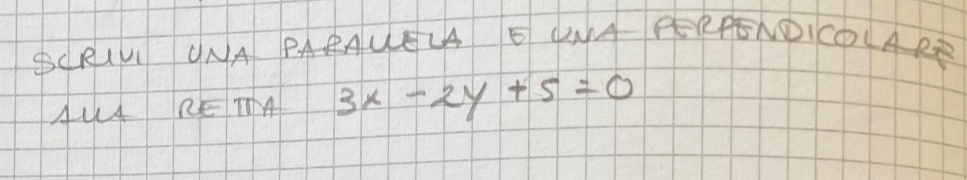 SCRIVI UNA PARALLELA E UNA PERPENDICOLARE
ALLA RETTA 3x - 2y + 5 = 0